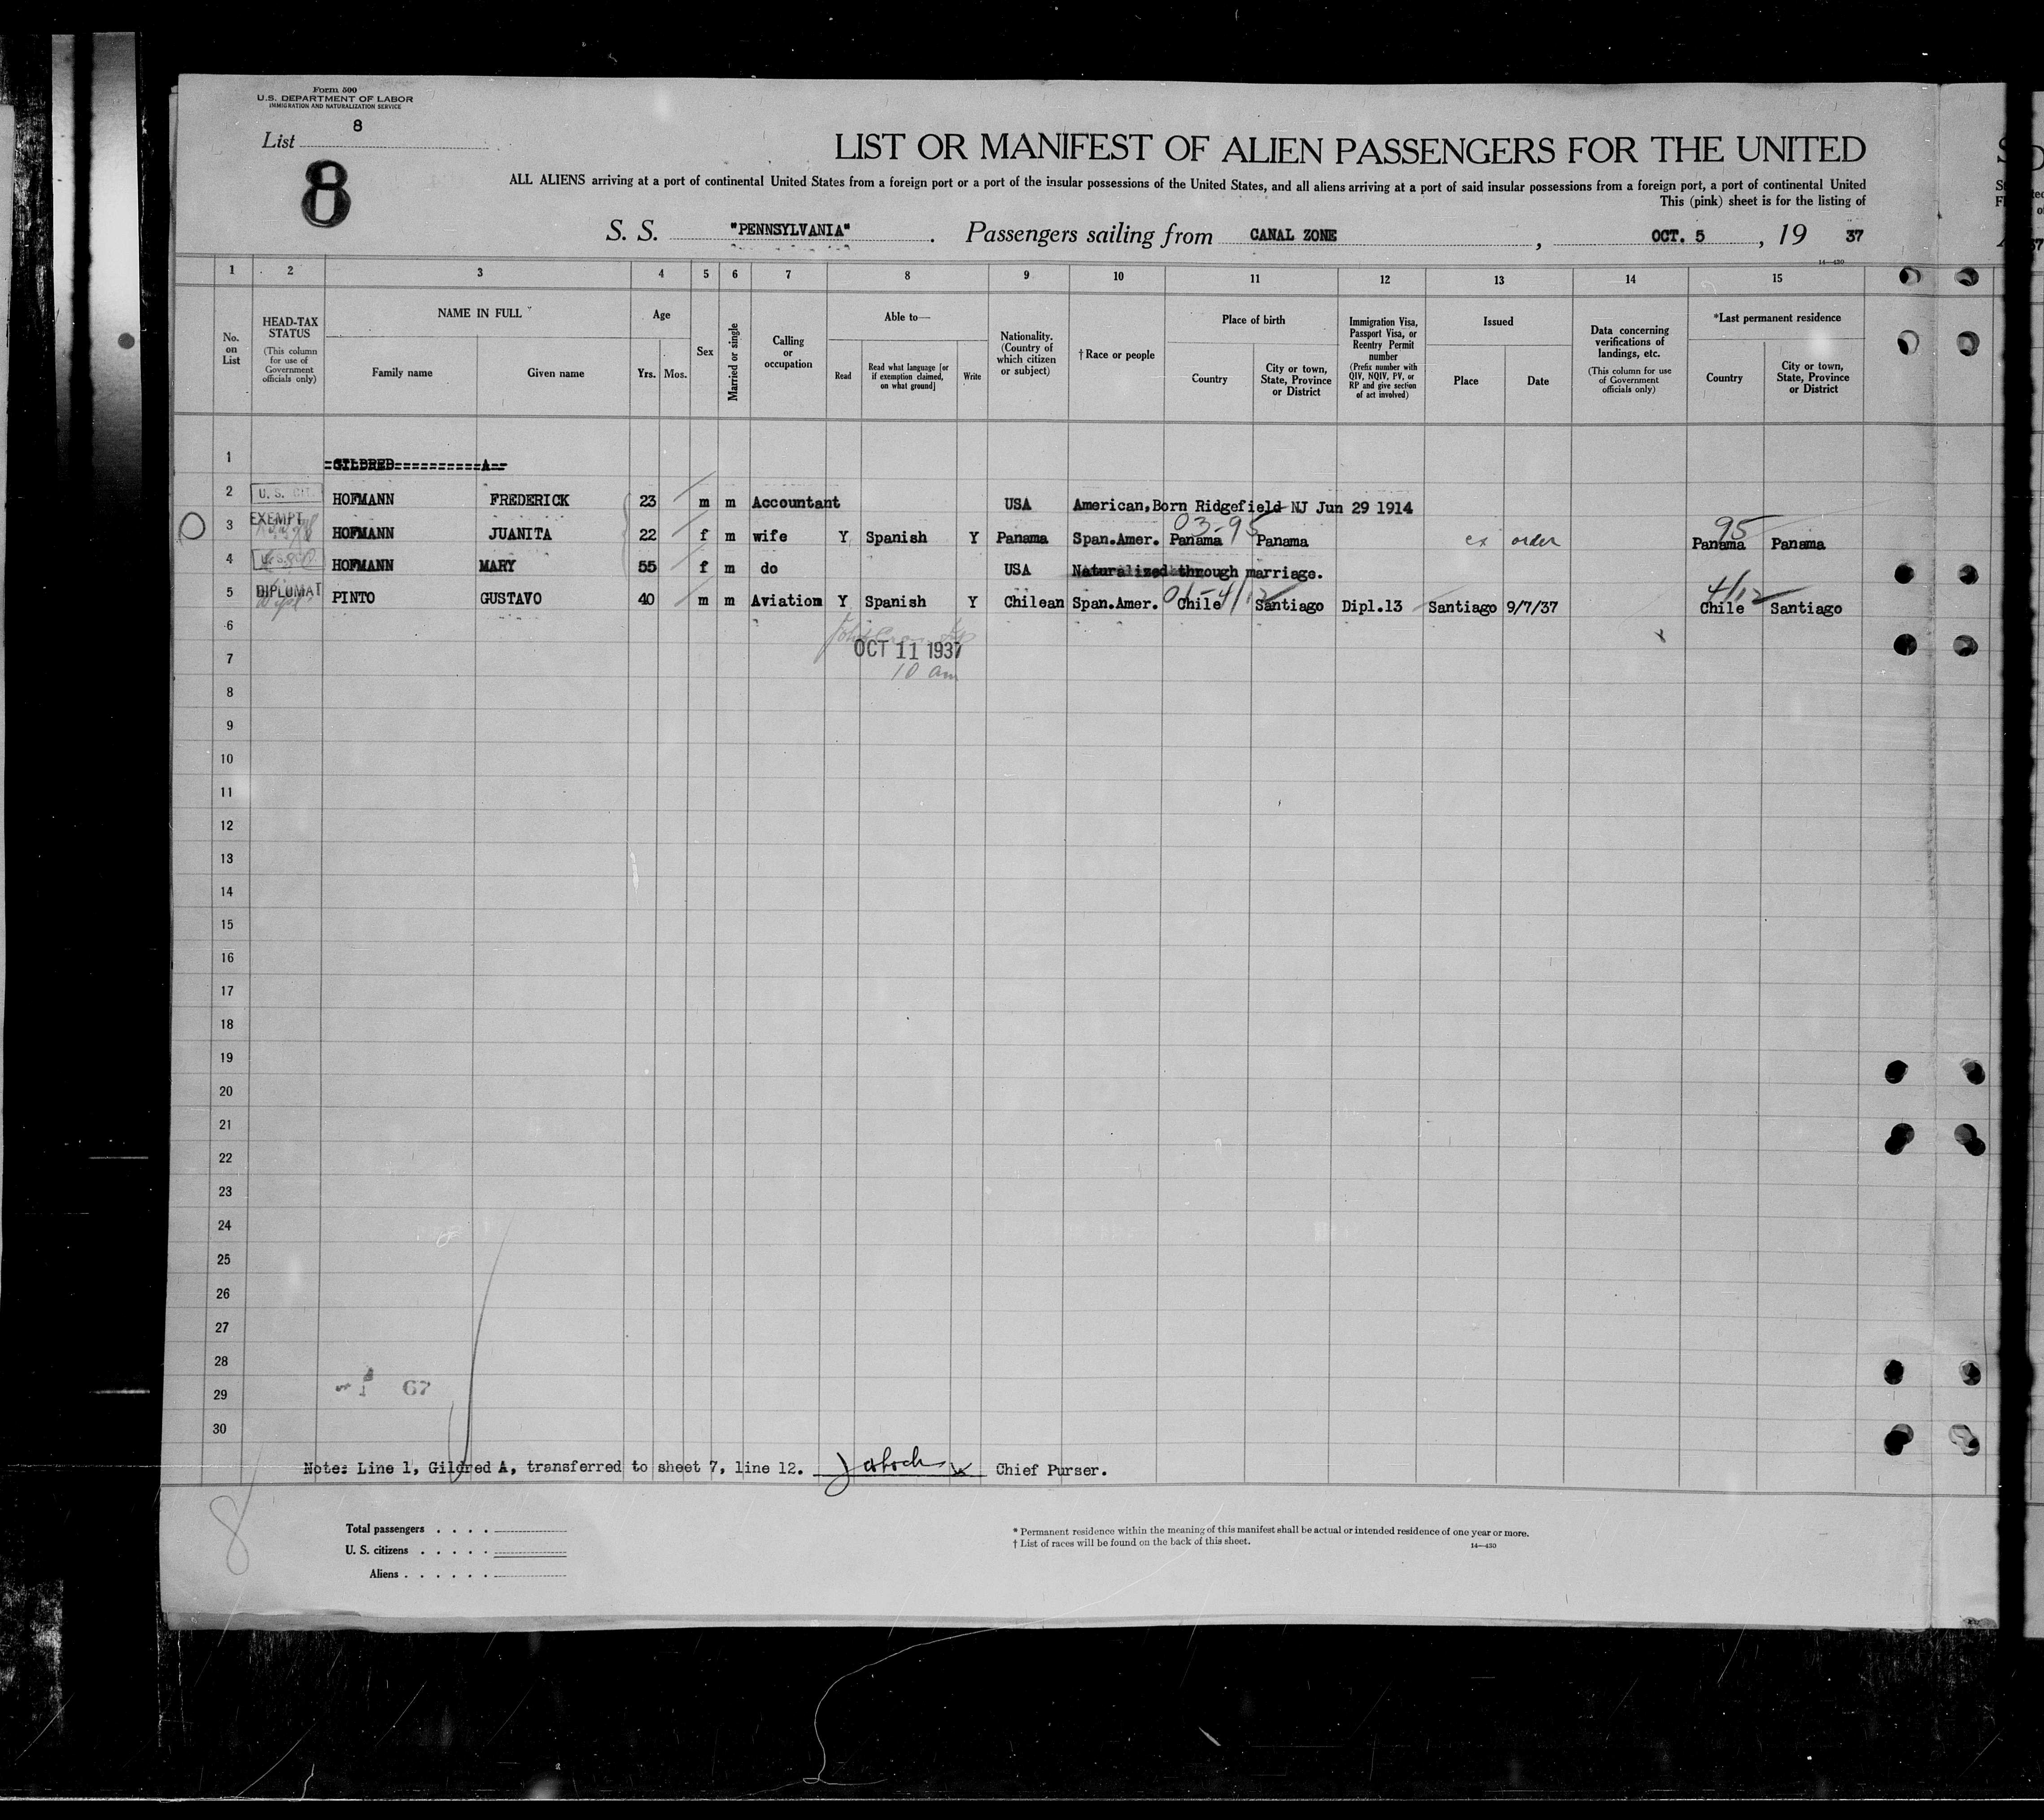 Form 500
U.S. DEPARTMENT OF LABOR
IMMIGRATION AND NATURALIZATION SERVICE
List 8
8
LIST OR MANIFEST OF ALIEN PASSENGERS FOR THE UNITED
ALL ALIENS arriving at a port of continental United States from a foreign port or a port of the insular possessions of the United States, and all aliens arriving at a port of said insular possessions from a foreign port, a port of continental United
This (pink) sheet is for the listing of
S. S. "PENNSYLVANIA". Passengers sailing from CANAL ZONE, OCT. 5, 19 37
14—430
1 2 3 4 5 6 7 8 9 10 11 12 13 14 15
No. on List
HEAD-TAX STATUS
(This column for use of Government officials only)
NAME IN FULL
Family name
Given name
Age
Yrs.
Mos.
Sex
Married or single
Calling or occupation
Able to—
Read
Read what language [or if exemption claimed, on what ground]
Write
Nationality. (Country of which citizen or subject)
† Race or people
Place of birth
Country
City or town, State, Province or District
Immigration Visa, Passport Visa, or Reentry Permit number
(Prefix number with QIV, NQIV, PV, or RP and give section of act involved)
Issued
Place
Date
Data concerning verifications of landings, etc.
(This column for use of Government officials only)
*Last permanent residence
Country
City or town, State, Province or District
1 GILDRED A
2 U. S. CIT. HOFMANN FREDERICK 23 m m Accountant USA American,Born Ridgefield NJ Jun 29 1914
03-95 95
3 EXEMPT HOFMANN JUANITA 22 f m wife Y Spanish Y Panama Span.Amer. Panama Panama ex order Panama Panama
4 HOFMANN MARY 55 f m do USA Naturalized through marriage.
4/12
5 DIPLOMAT PINTO GUSTAVO 40 m m Aviation Y Spanish Y Chilean Span.Amer. Chile Santiago Dipl.13 Santiago 9/7/37 Chile Santiago
6
OCT 11 1937
7
10 am
8
9
10
11
12
13
14
15
16
17
18
19
20
21
22
23
24
25
26
27
28
29 67
30
Note: Line 1, Gildred A, transferred to sheet 7, line 12. Chief Purser.
8
Total passengers . . . .
U. S. citizens . . . . .
Aliens . . . . . .
* Permanent residence within the meaning of this manifest shall be actual or intended residence of one year or more.
† List of races will be found on the back of this sheet.
14—430